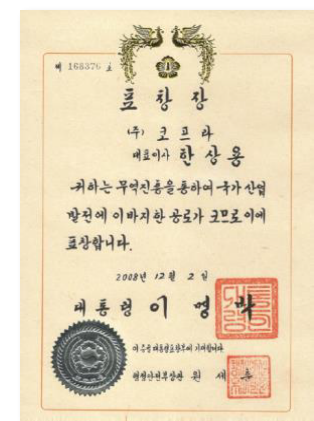 제 168376 호
표 창 장
(주) 코 프 라
대표이사 한 상 용
귀하는 무역진흥을 통하여 국가 산업
발전에 이바지한 공로가 크므로 이에
표창합니다.
2008년 12월 2일
대통령 이 명 박
이 증을 대통령표창부에 기재합니다
행정안전부장관 원 세 훈